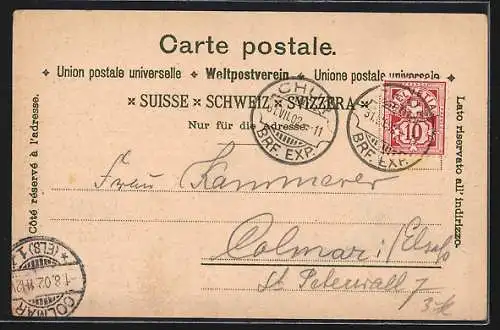 Carte postale.
✦ Union postale universelle ✦ Weltpostverein ✦ Unione postale universale ✦
× SUISSE × SCHWEIZ × SVIZZERA ×
Nur für die Adresse.
Côté réservé à l'adresse.
Lato riservato all' indirizzo.
CHUR
31.VII.02. -11
BRF. EXP.
BRF. EXP.
HELVETIA
10
Frau Kammerer
Colmar i/Elsass
St Peterwall 7
COLMAR
1.8.02.
* (ELS) 1